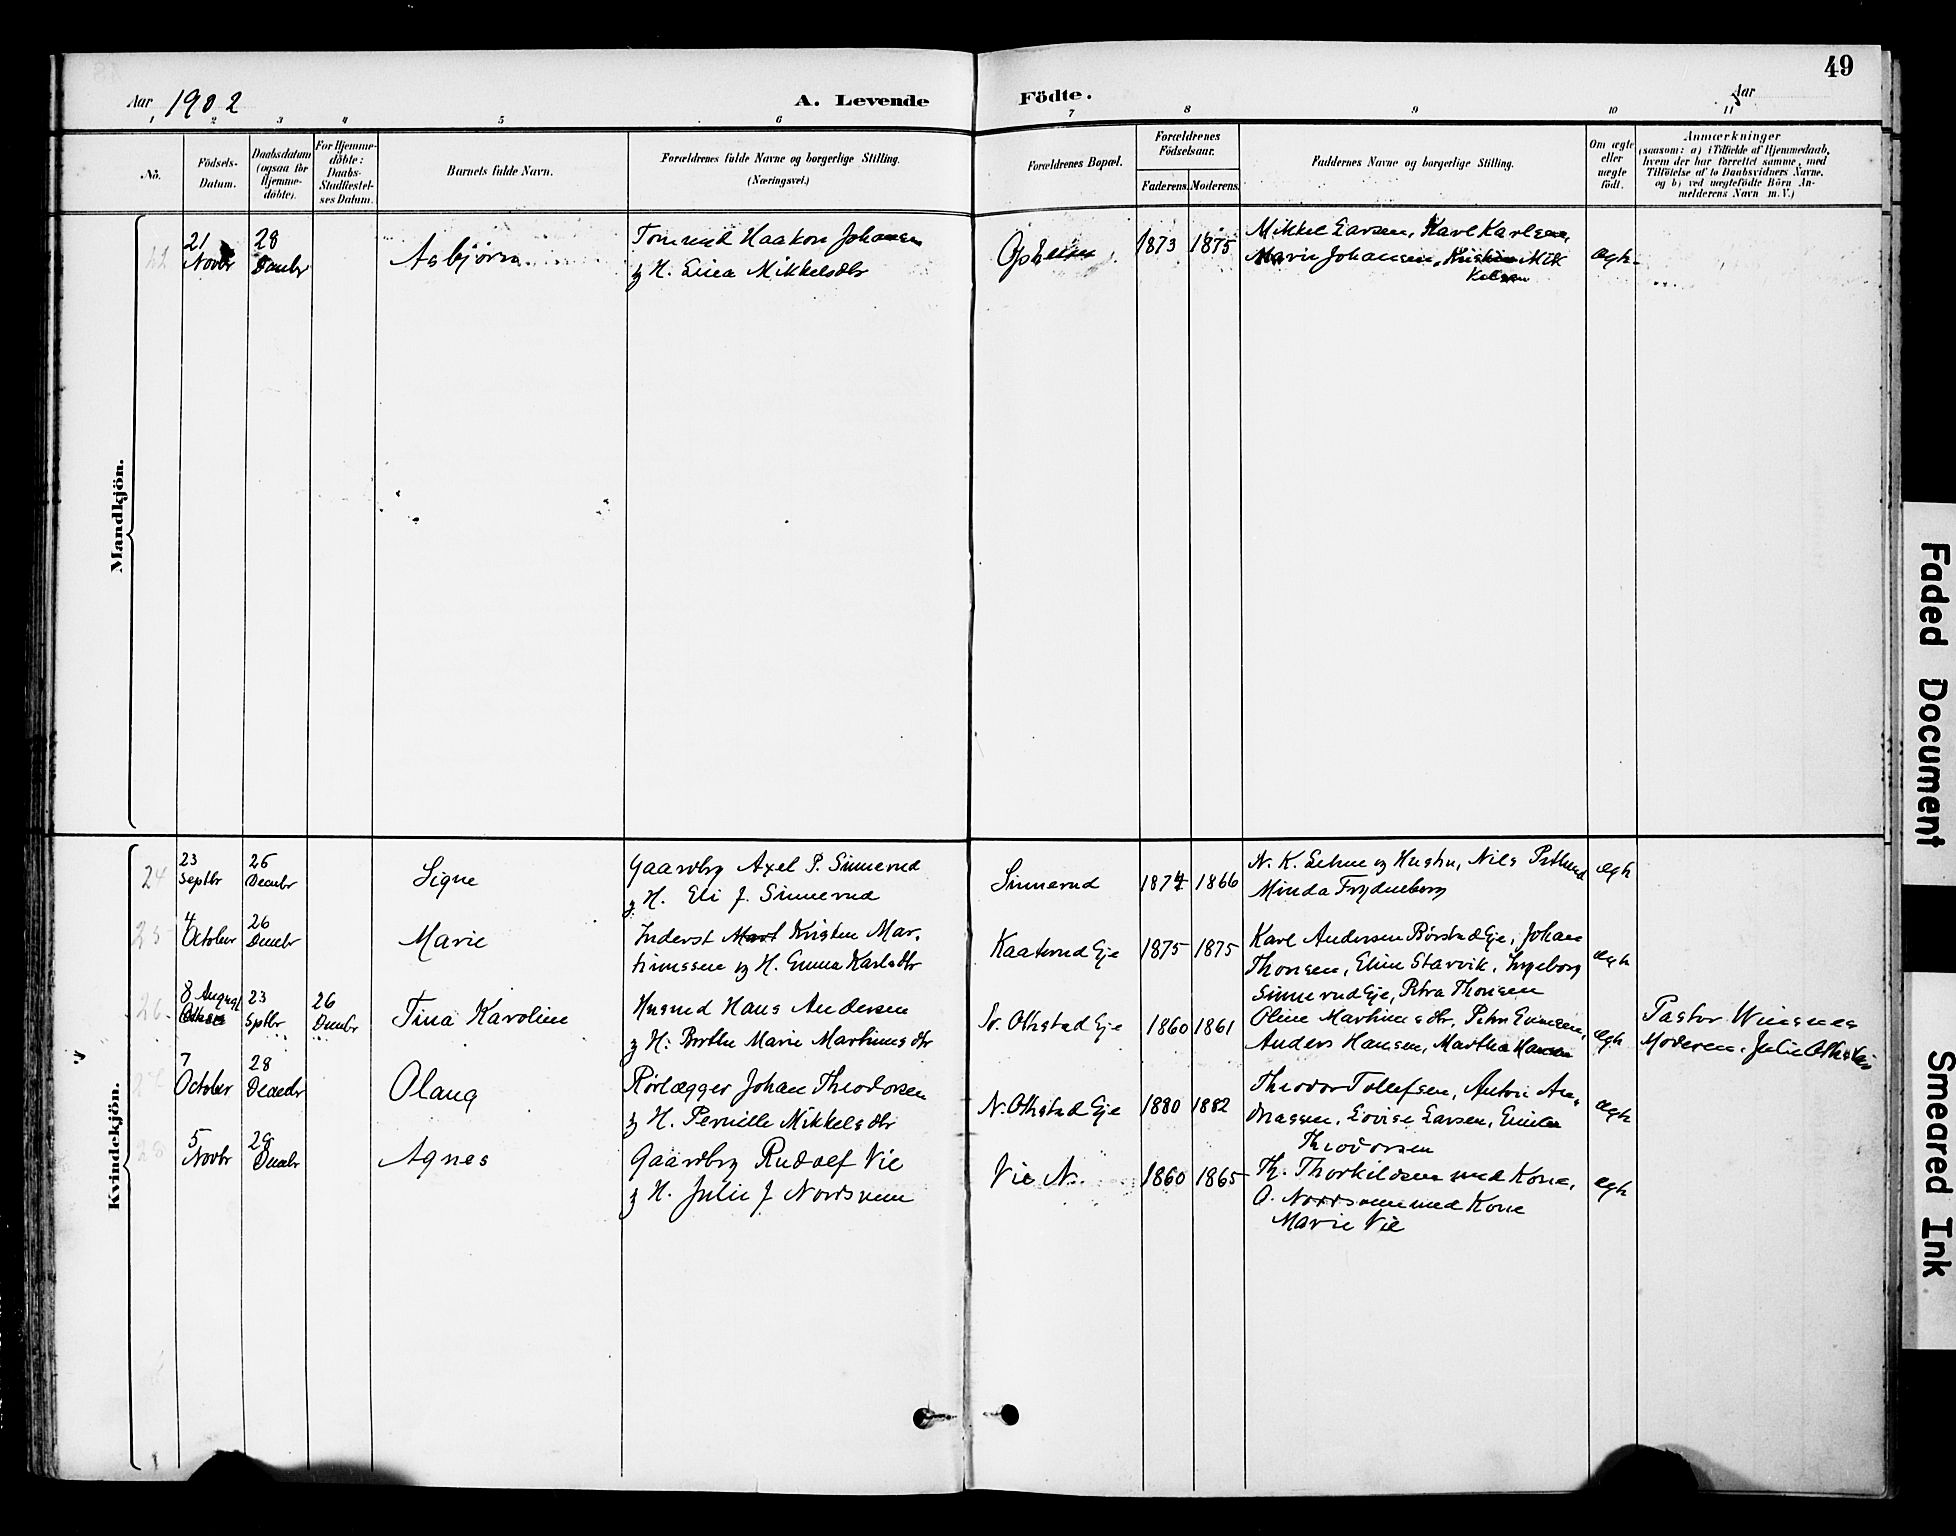 49
Aar 1902
A. Levende
Födte.
Aar
1 2 3 4 5 6 7 8 9 10 11
No.
Födsels-
Datum.
Daabsdatum
(ogsaa for
Hjemme-
döbte).
For Hjemme-
döbte:
Daabs-
Stadfæstel-
ses Datum.
Barnets fulde Navn.
Forældrenes fulde Navne og borgerlige Stilling.
(Næringsvei.)
Forældrenes Bopæl.
Forældrenes
Födselsaar.
Faderens. Moderens.
Faddernes Navne og borgerlige Stilling.
Om ægte
eller
uægte
födt.
Anmærkninger
(saasom: a) i Tilfælde af Hjemmedaab,
hvem der har forrettet samme, med
Tilföielse af to Daabsvidners Navne,
og b) ved uægtefödte Börn An-
melderens Navn m.V.)
Mandkjön.
21
Novbr
28
Decmbr
Asbjörn
Haakon Johansen
og H. Lina Mikkelsdtr
1873 1875
Mikkel Larsen, Karl Karlsen,
Marie Johansen, Kristine Mik
kelsen
ægte
Kvindekjön.
24
23
Septbr
26
Decmbr
Signe
Gaardbrg Axel P. Sinnerud
og H. Eli J. Sinnerud
Sinnerud
1874 1866
N. K. Lehne og Hustru, Nils
Minda Frydenborg
ægte
25
4
October
26
Decmbr
Marie
Inderst Kristen Mar-
tinussen og H. Emma Karlsdtr
Kaaterud Eje
1875 1875
Karl Andersen Börstad Eje, Johan
Thonsen, Eline Starvik, Ingeborg
Sinnerud Eje, Petra Thonsen
ægte
26
8 August
23
Sptbr
26
Decmbr
Tina Karoline
Husmd Hans Andersen
og H: Berthe Marie Martinusdtr
N. Othstad Eje
1860 1861
Oline Martinusdtr, Peter Evensen,
Anders Hansen, Martha Hansen
ægte
Pastor Wiesnes
Moderen, Julie
27
7
October
28
Decmbr
Olaug
Rörlægger Johan Theodorsen
og H. Pernille Mikkelsdtr
N. Othstad Eje
1880 1882
Theodor Tollefsen, Anton An-
dreassen, Lovise Larsen, Emilie
Theodorsen
ægte
28
5
Novbr
28
Decmbr
Agnes
Gaardbrg Rudolf Vie
og H. Julie J. Nordsveen
Vie N.
1860 1865
Th. Thorkildsen med Kone,
O. Nordsveen med Kone
Marie Vie
ægte
Faded Document
Smeared Ink